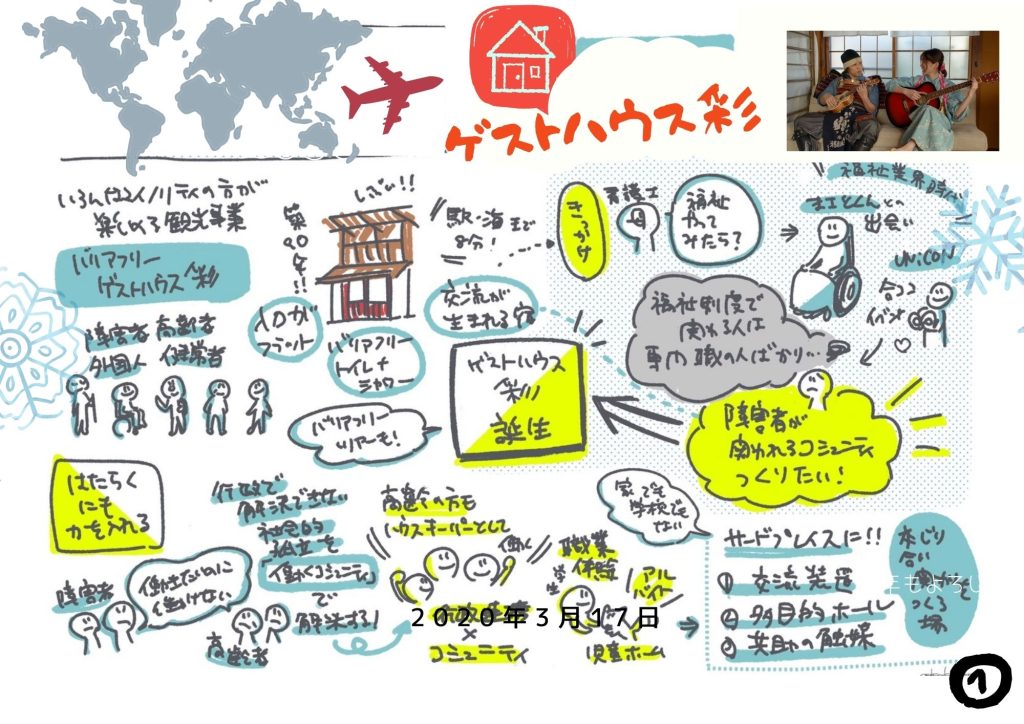 ゲストハウス彩
いろんなマイノリティの方が
楽しめる観光事業
バリアフリー
ゲストハウス彩
障害者 高齢者
外国人 健常者
築90年!!
しぶい!!
入口が
フラット
バリアフリー
トイレ+
シャワー
駅・海まで
8分!
交流が
生まれる宿
バリアフリー
ツアーも!
ゲストハウス
彩
誕生
きっかけ
看護士
福祉
やって
みたら?
福祉業界時代
まことくんとの
出会い
UNICON
合コン
イベント
福祉制度で
関わる人は
専門職の人ばかり…
障害者が
関われるコミュニティ
つくりたい!
はたらく
にも
力を入れる
障害者
働きたいのに
働けない
高齢者
行政で
解決できない
社会的
孤立を
「働くコミュニティ」
で
解決する!
高齢の方も
ハウスキーパーとして
働く
×
コミュニティ
職業
体験
学生
アル
バイト
児童ホーム
2020年3月17日
家でも
学校でも
ない
サードプレイスに!!
① 交流装置
② 多目的ホール
③ 共助の触媒
まじり
合い
つくる
場
1